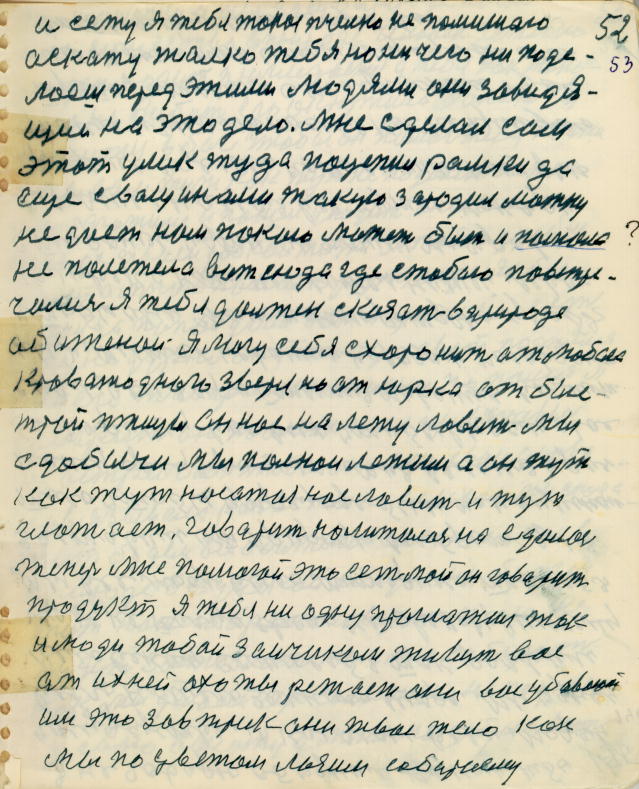 52
53
и сету я тебя торопчелко не помишаю
аскажу жалко тебя но ни чего ни поде-
лоеш перед этими людями они заведя-
щий на это дело. Мне сделал сам
этот улик туда поцепил рамки да
еще с ващинами такую загодил матку
не дает нам покою может быт и пакала ?
не полетела вот сюда где с тобаю повтре-
чался я тебя должен сказат в природе
абиженой я могу себя схоронит от любова
кроважодного зверя но от юрка от быс-
трой птицы он нас на лету ловит мы
с добычи мы полной летим а он тут
как тут носатый нас ловит и тут
глотает, говарит налитался на сдался
тепер мне помогой это сет мой он говарит
продукт я тебя ни одну проглатил так
и люди тобой заичиком живут вас
от ихней охоты
им это завтрик они твое тело как
мы по цветам лазим собираем